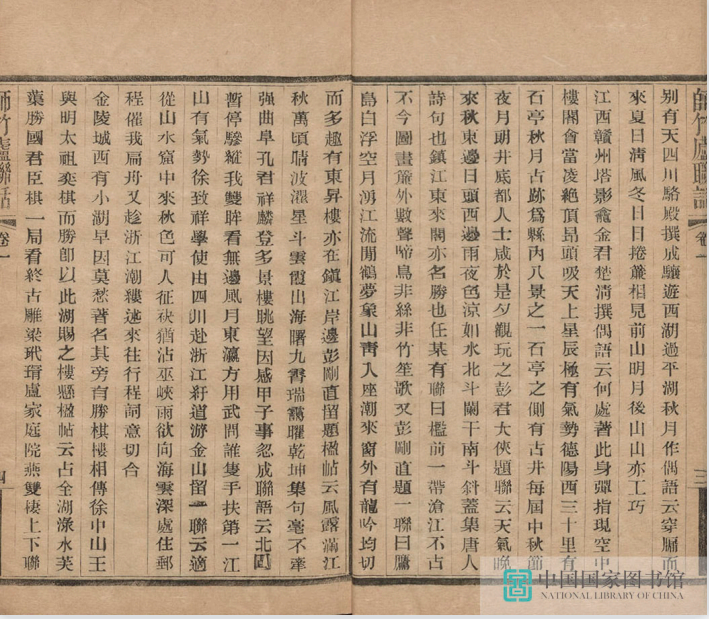 師竹廬聯話 卷一 三
別有天四川駱殿撰成驤遊西湖過平湖秋月作偶語云穿牖而
來夏日淸風冬日日捲簾相見前山明月後山山亦工巧
江西贛州塔影龕金君楚淸撰偶語云何處著此身彈指現空中
樓閣會當凌絶頂昻頭吸天上星辰極有氣勢德陽西三十里有
石亭秋月古跡爲縣內八景之一石亭之側有古井每屆中秋節
夜月朗井底都人士咸於是夕觀玩之彭君大俠題聯云天氣晚
來秋東邊日頭西邊雨夜色涼如水北斗闌干南斗斜蓋集唐人
詩句也鎭江東來閣亦名勝也任某有聯曰檻前一帶滄江不古
不今圖畫簾外數聲啼鳥非絲非竹笙歌又彭剛直題一聯曰鴈
島白浮空月湧江流閒鶴夢象山靑入座潮來窗外有龍吟均切
而多趣有東昇樓亦在鎭江岸邊彭剛直留題楹帖云風露滿江
秋萬頃晴波漾星斗雲霞山海曙九霄瑞靄曜乾坤集句毫不牽
强曲阜孔君祥麟登多景樓眺望因感甲子事忽成聯語云北固
暫停驂縱我雙眸看無邊風月東瀛方用武問誰隻手扶第一江
山有氣勢徐致祥學使由四川赴浙江紆道游金山留一聯云適
從山水窟中來秋色可人征袂猶沾巫峽雨欲向海雲深處住郵
程催我扁舟又趁浙江潮縷述來往行程詞意切合
金陵城西有小湖早因莫愁著名其旁有勝棋樓相傳徐中山王
與明太祖奕棋而勝卽以此湖賜之樓懸楹帖云占全湖淥水芙
蕖勝國君臣棋一局看終古雕梁玳瑁盧家庭院燕雙棲上下聯
師竹廬聯話 卷一 四
中国国家图书馆
NATIONAL LIBRARY OF CHINA